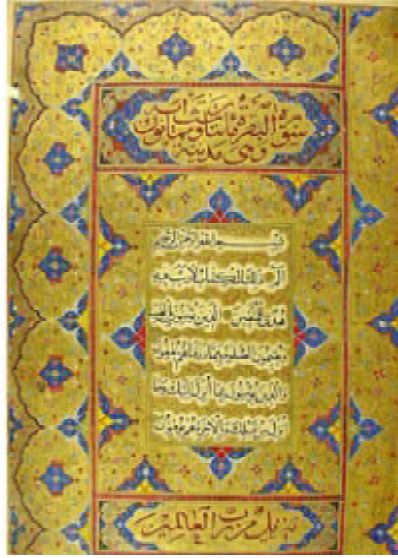 سورة البقرة مائتان وست وثمانون
وهي مدنية
بسم الله الرحمن الرحيم
الم ذلك الكتاب لا ريب فيه
هدى للمتقين الذين يؤمنون بالغيب
ويقيمون الصلوة ومما رزقناهم ينفقون
والذين يؤمنون بما أنزل إليك وما
أنزل من قبلك وبالآخرة هم يوقنون
تنزيل من رب العالمين